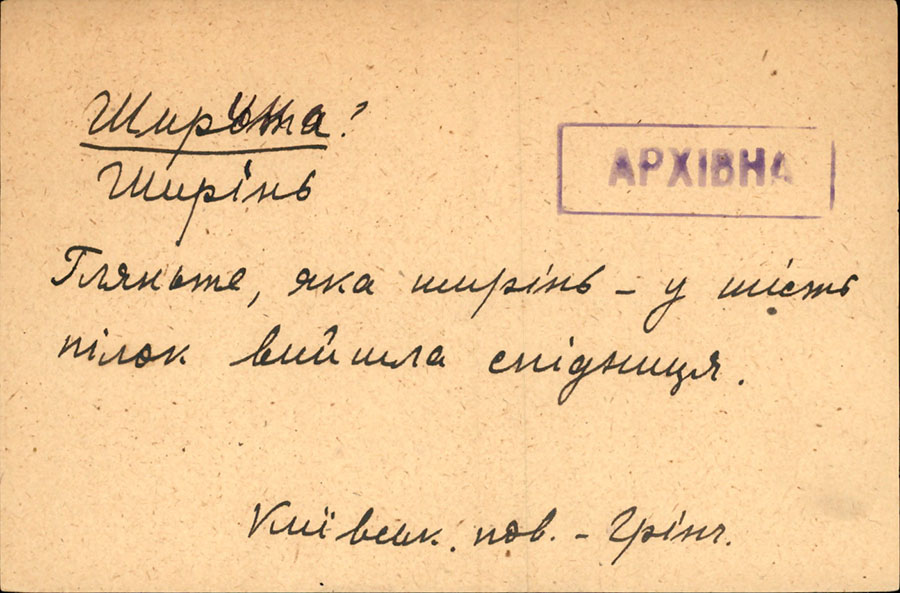 Ширина?
АРХІВНА
Ширінь
Гляньте, яка ширінь – у шість
пілок вийшла спідниця.
Київськ. пов. – Грінч.